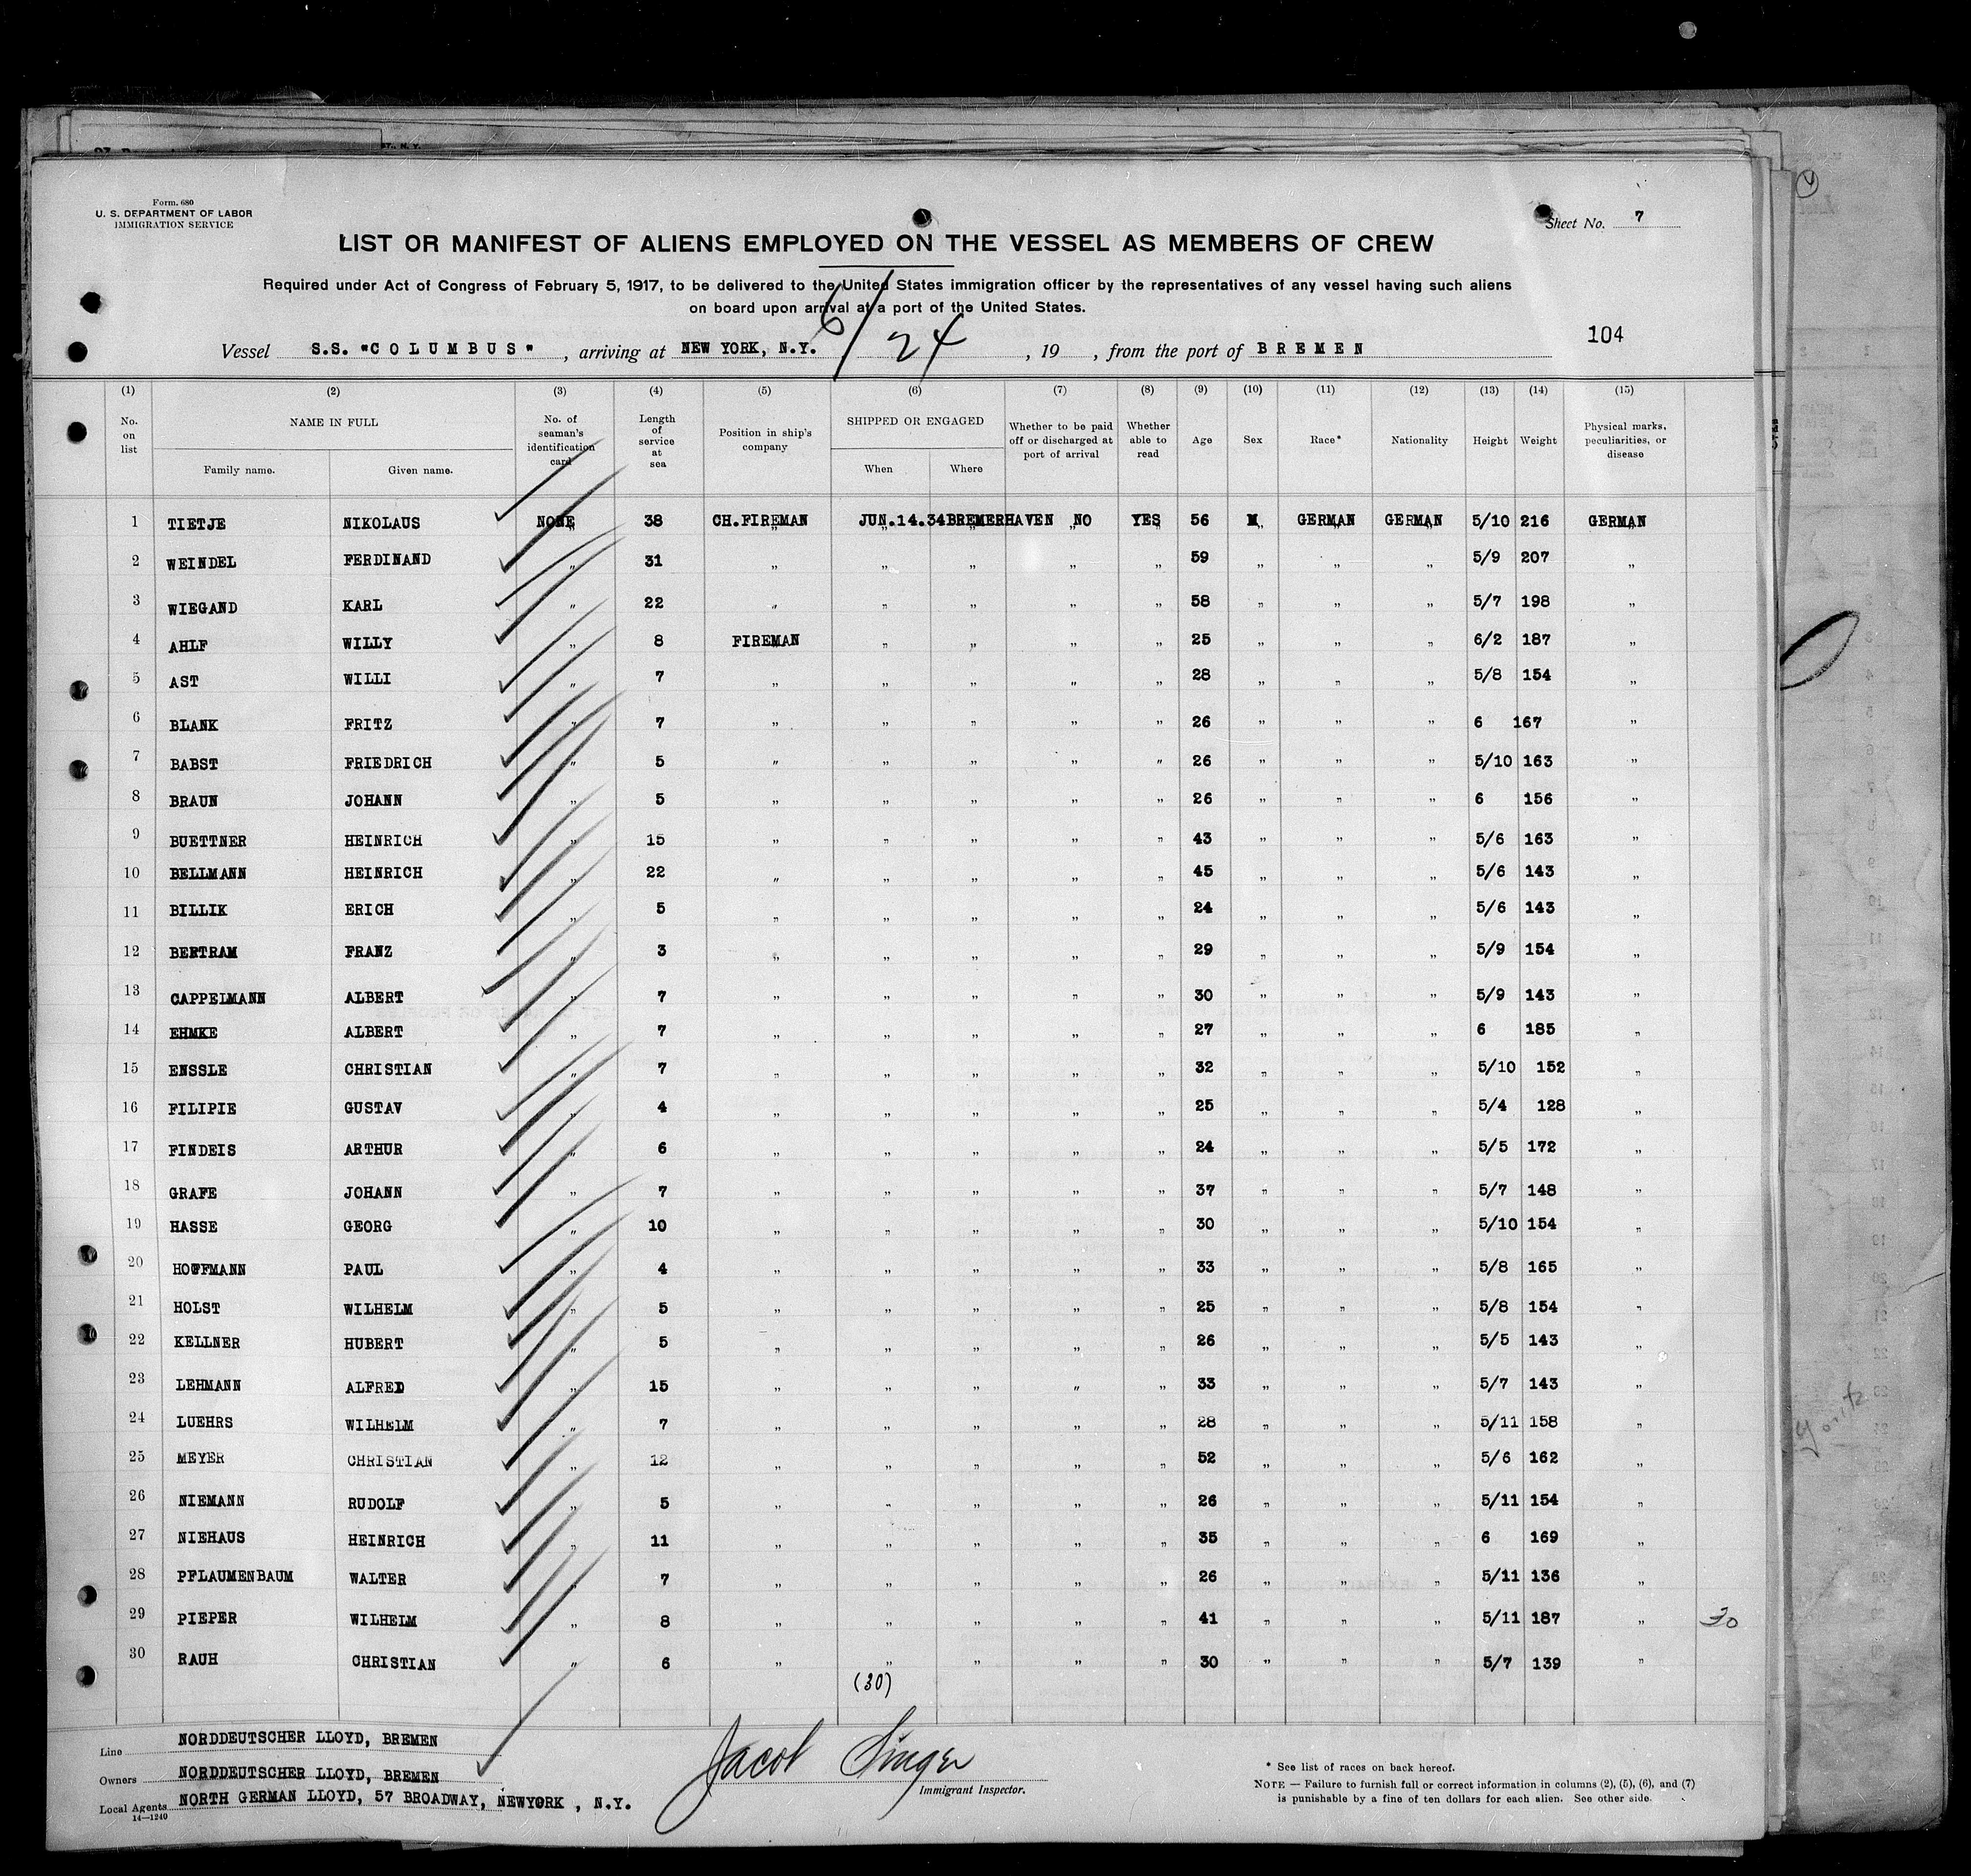 Form. 680
U. S. DEPARTMENT OF LABOR
IMMIGRATION SERVICE
Sheet No. 7
LIST OR MANIFEST OF ALIENS EMPLOYED ON THE VESSEL AS MEMBERS OF CREW
Required under Act of Congress of February 5, 1917, to be delivered to the United States immigration officer by the representatives of any vessel having such aliens
on board upon arrival at a port of the United States.
104
Vessel S.S. "COLUMBUS", arriving at NEW YORK, N.Y. 6/24, 19 , from the port of BREMEN
(1) (2) (3) (4) (5) (6) (7) (8) (9) (10) (11) (12) (13) (14) (15)
No. on list NAME IN FULL Family name. Given name. No. of seaman's identification card Length of service at sea Position in ship's company SHIPPED OR ENGAGED When Where Whether to be paid off or discharged at port of arrival Whether able to read Age Sex Race* Nationality Height Weight Physical marks, peculiarities, or disease
1 TIETJE NIKOLAUS NONE 38 CH.FIREMAN JUN.14.34 BREMERHAVEN NO YES 56 M GERMAN GERMAN 5/10 216 GERMAN
2 WEINDEL FERDINAND „ 31 „ „ „ „ „ 59 „ „ „ 5/9 207 „
3 WIEGAND KARL „ 22 „ „ „ „ „ 58 „ „ „ 5/7 198 „
4 AHLF WILLY „ 8 FIREMAN „ „ „ „ 25 „ „ „ 6/2 187 „
5 AST WILLI „ 7 „ „ „ „ „ 28 „ „ „ 5/8 154 „
6 BLANK FRITZ „ 7 „ „ „ „ „ 26 „ „ „ 6 167 „
7 BABST FRIEDRICH „ 5 „ „ „ „ „ 26 „ „ „ 5/10 163 „
8 BRAUN JOHANN „ 5 „ „ „ „ „ 26 „ „ „ 6 156 „
9 BUETTNER HEINRICH „ 15 „ „ „ „ „ 43 „ „ „ 5/6 163 „
10 BELLMANN HEINRICH „ 22 „ „ „ „ „ 45 „ „ „ 5/6 143 „
11 BILLIK ERICH „ 5 „ „ „ „ „ 24 „ „ „ 5/6 143 „
12 BERTRAM FRANZ „ 3 „ „ „ „ „ 29 „ „ „ 5/9 154 „
13 CAPPELMANN ALBERT „ 7 „ „ „ „ „ 30 „ „ „ 5/9 143 „
14 EHMKE ALBERT „ 7 „ „ „ „ „ 27 „ „ „ 6 185 „
15 ENSSLE CHRISTIAN „ 7 „ „ „ „ „ 32 „ „ „ 5/10 152 „
16 FILIPIE GUSTAV „ 4 „ „ „ „ „ 25 „ „ „ 5/4 128 „
17 FINDEIS ARTHUR „ 6 „ „ „ „ „ 24 „ „ „ 5/5 172 „
18 GRAFE JOHANN „ 7 „ „ „ „ „ 37 „ „ „ 5/7 148 „
19 HASSE GEORG „ 10 „ „ „ „ „ 30 „ „ „ 5/10 154 „
20 HOFFMANN PAUL „ 4 „ „ „ „ „ 33 „ „ „ 5/8 165 „
21 HOLST WILHELM „ 5 „ „ „ „ „ 25 „ „ „ 5/8 154 „
22 KELLNER HUBERT „ 5 „ „ „ „ „ 26 „ „ „ 5/5 143 „
23 LEHMANN ALFRED „ 15 „ „ „ „ „ 33 „ „ „ 5/7 143 „
24 LUEHRS WILHELM „ 7 „ „ „ „ „ 28 „ „ „ 5/11 158 „
25 MEYER CHRISTIAN „ 12 „ „ „ „ „ 52 „ „ „ 5/6 162 „
26 NIEMANN RUDOLF „ 5 „ „ „ „ „ 26 „ „ „ 5/11 154 „
27 NIEHAUS HEINRICH „ 11 „ „ „ „ „ 35 „ „ „ 6 169 „
28 PFLAUMENBAUM WALTER „ 7 „ „ „ „ „ 26 „ „ „ 5/11 136 „
29 PIEPER WILHELM „ 8 „ „ „ „ „ 41 „ „ „ 5/11 187 „ 30
30 RAUH CHRISTIAN „ 6 „ „ „ „ „ 30 „ „ „ 5/7 139 „
(30)
Line NORDDEUTSCHER LLOYD, BREMEN
Owners NORDDEUTSCHER LLOYD, BREMEN
Local Agents NORTH GERMAN LLOYD, 57 BROADWAY, NEWYORK, N.Y.
14—1240
Jacob Singer
Immigrant Inspector.
* See list of races on back hereof.
NOTE — Failure to furnish full or correct information in columns (2), (5), (6), and (7)
is punishable by a fine of ten dollars for each alien. See other side.